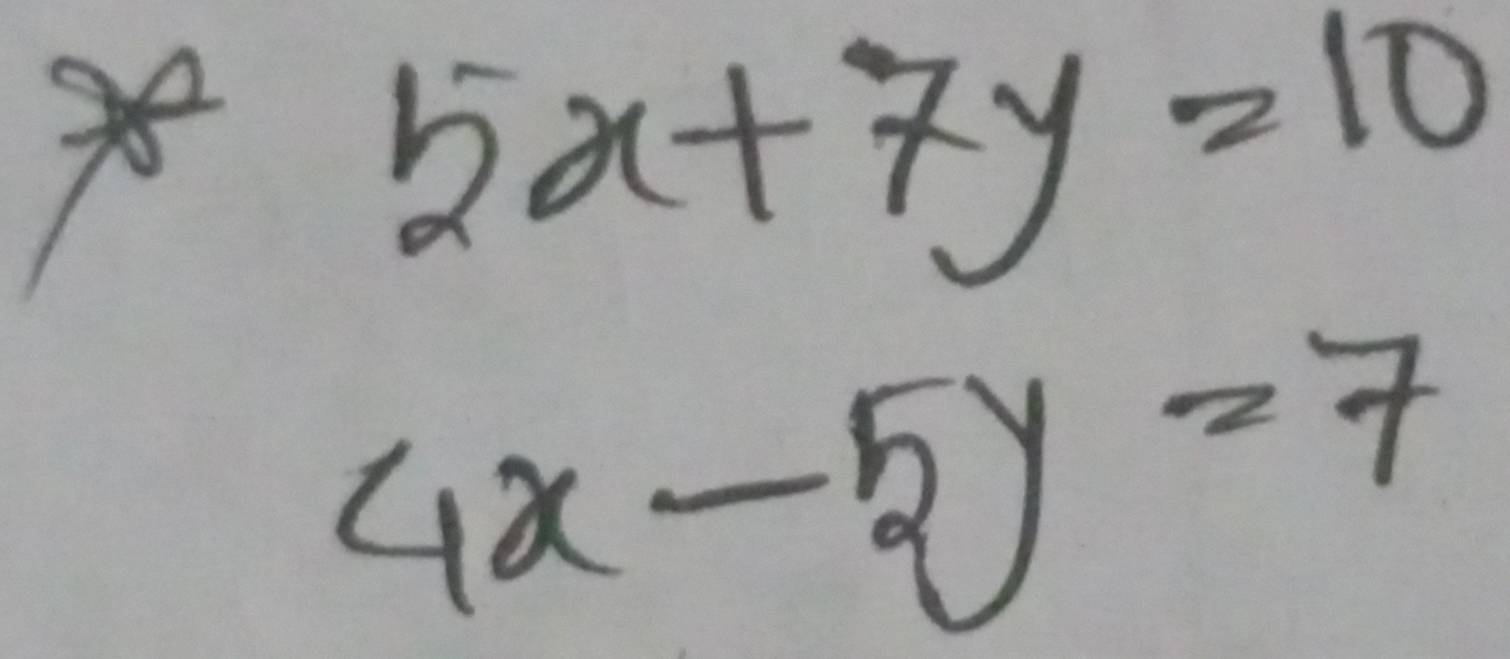 * 5x+7y=10
4x-5y=7